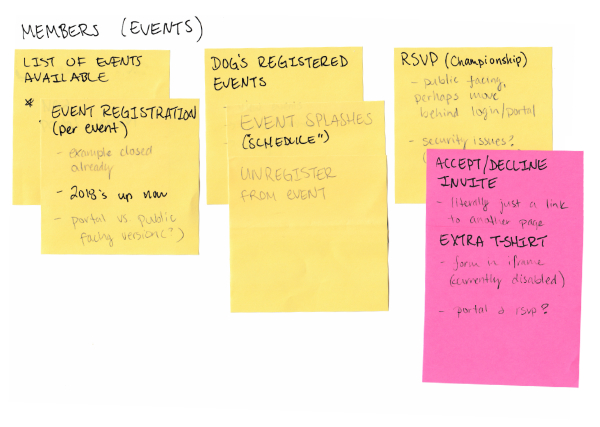 MEMBERS (EVENTS)
LIST OF EVENTS
AVAILABLE
*
EVENT REGISTRATION
(per event)
- example closed
already
- 2018's up now
- portal vs public
facing version(?)
DOG'S REGISTERED
EVENTS
EVENT SPLASHES
("SCHEDULE")
UNREGISTER
FROM EVENT
RSVP (Championship)
- public facing,
perhaps move
behind login/portal
- security issues?
ACCEPT/DECLINE
INVITE
- literally just a link
to another page
EXTRA T-SHIRT
- form in iframe
(currently disabled)
- portal & rsvp?